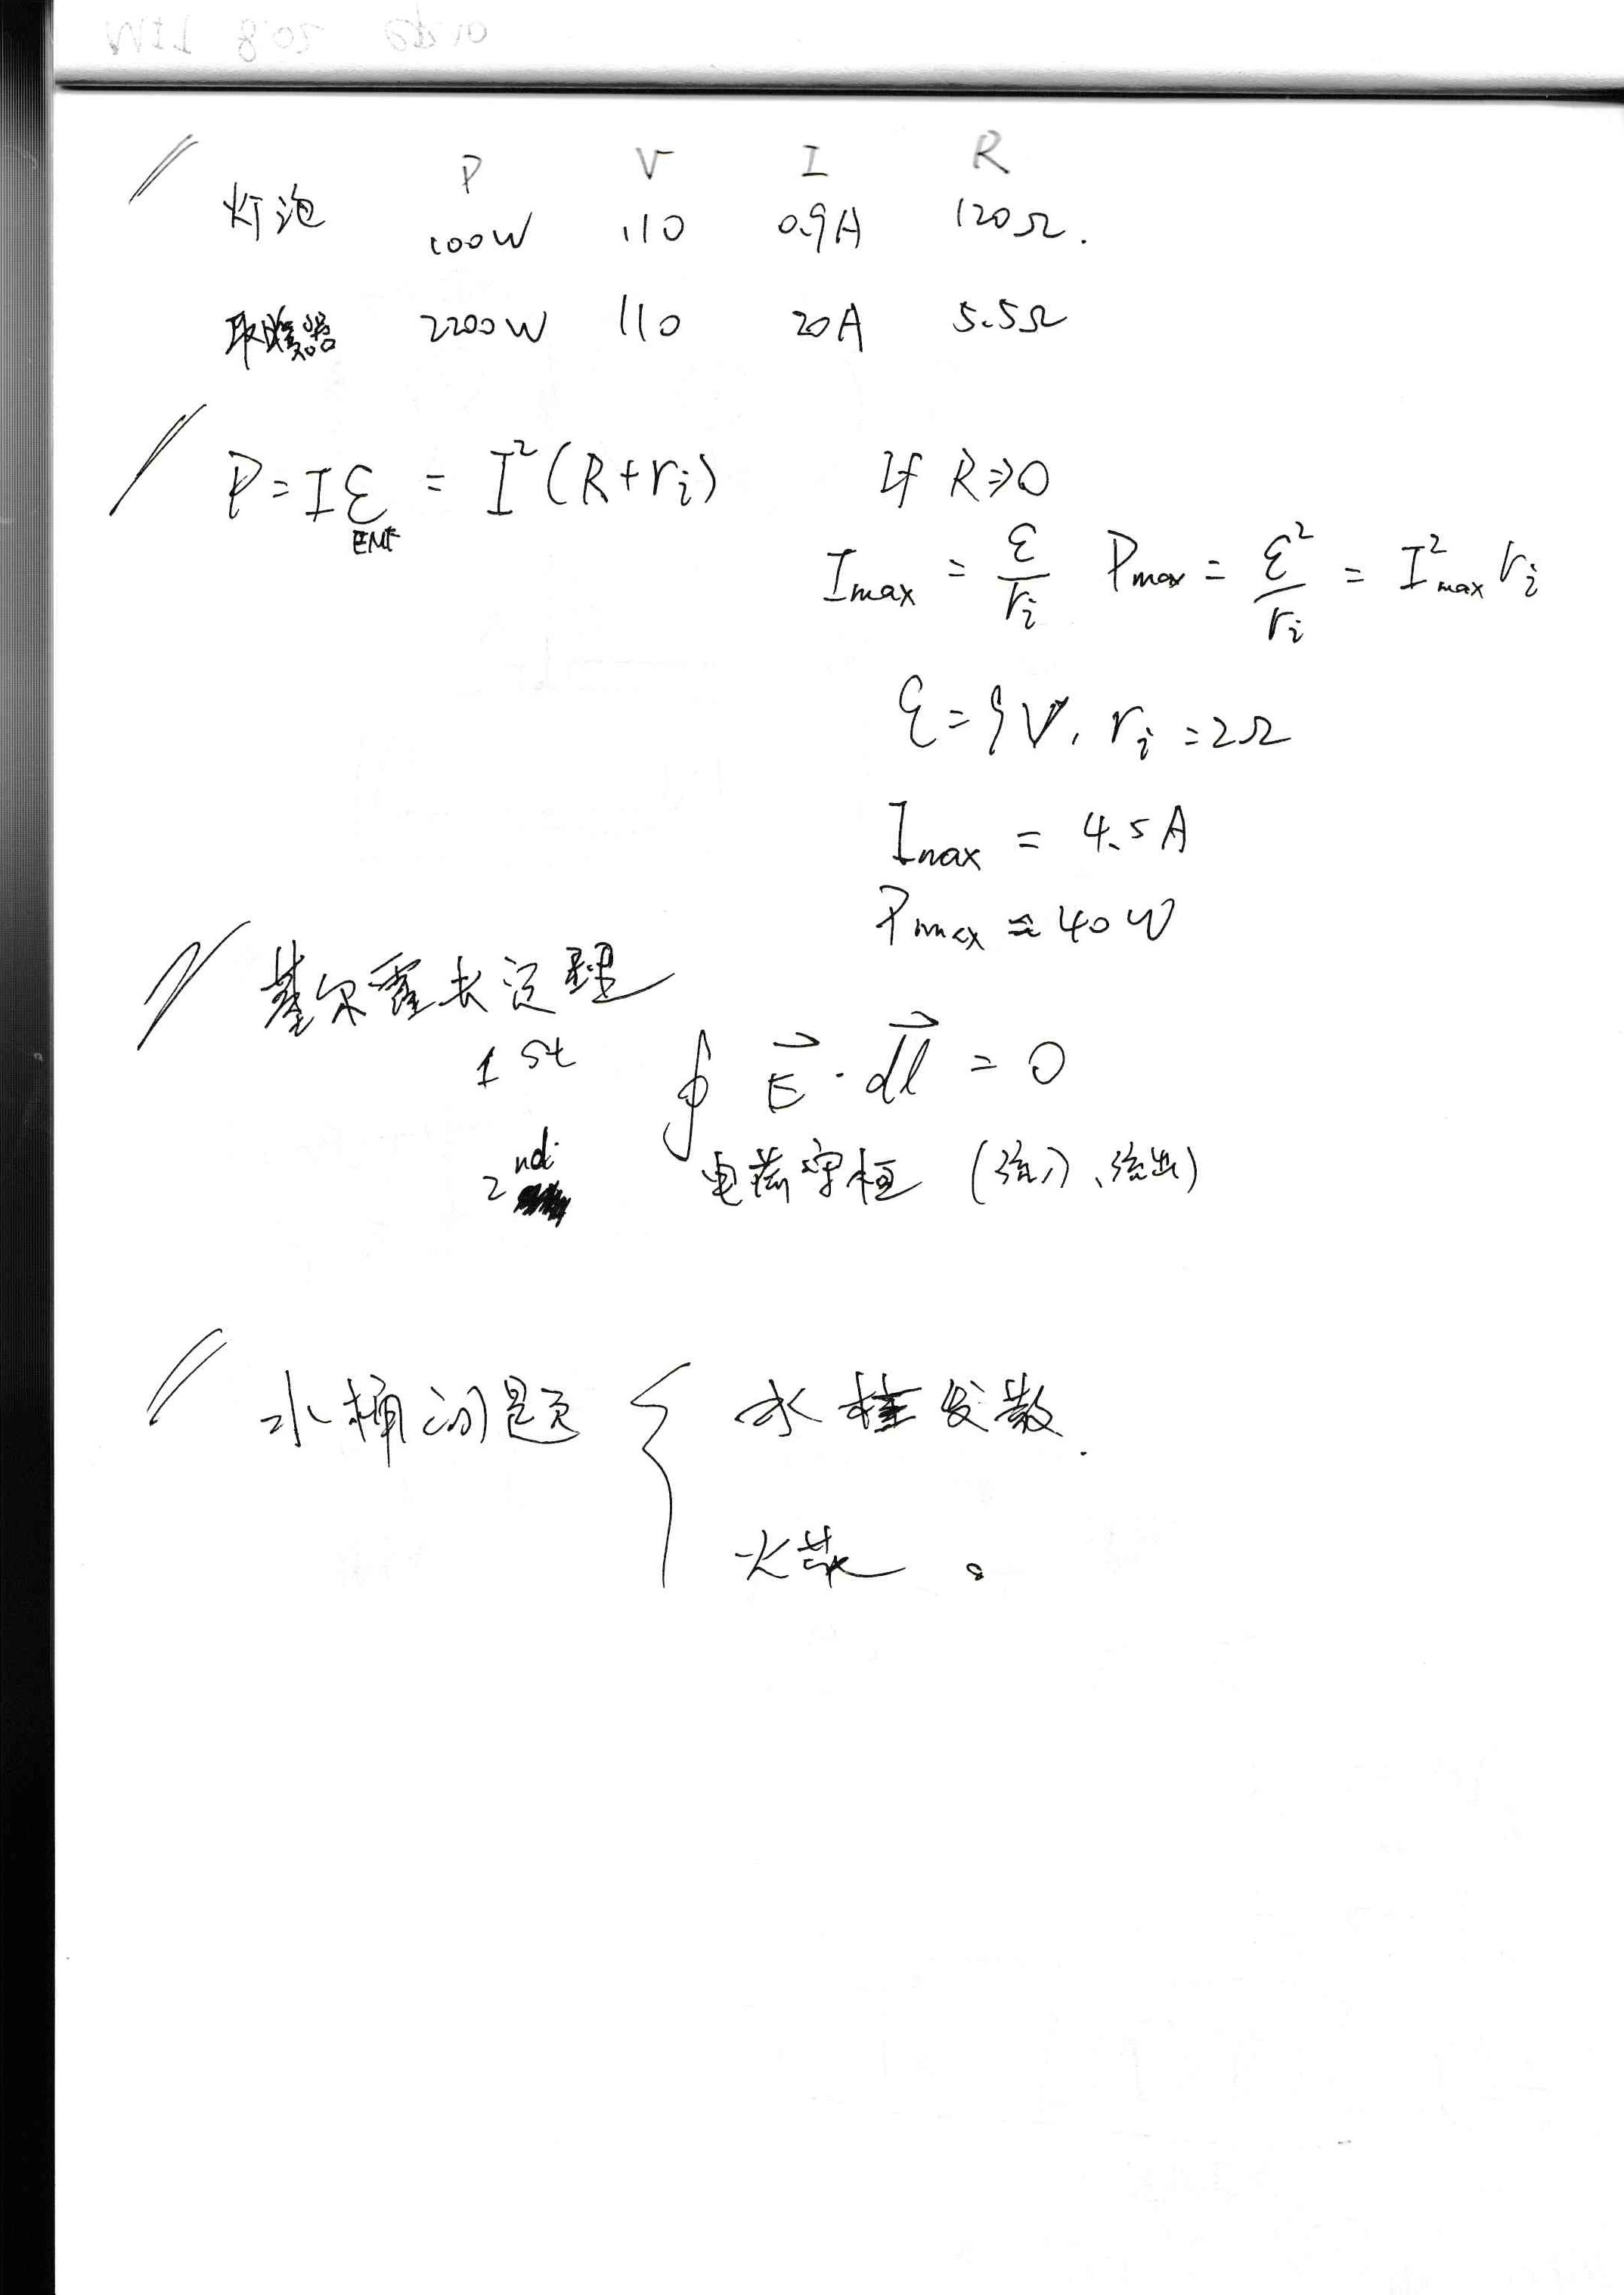 P V I R
灯泡 100W 110 0.9A 120Ω.
取暖器 2200W 110 20A 5.5Ω
P = I ε = I²(R + rᵢ) If R⇒0
EMF
Imax = ε/rᵢ Pmax = ε²/rᵢ = I²max rᵢ
ε = 9V, rᵢ = 2Ω
Imax = 4.5A
Pmax ≈ 40W
基尔霍夫定理
1st ∮ E⃗ · dl⃗ = 0
2nd 电荷守恒 (流入、流出)
水桶问题 { 水柱发散.
火花。